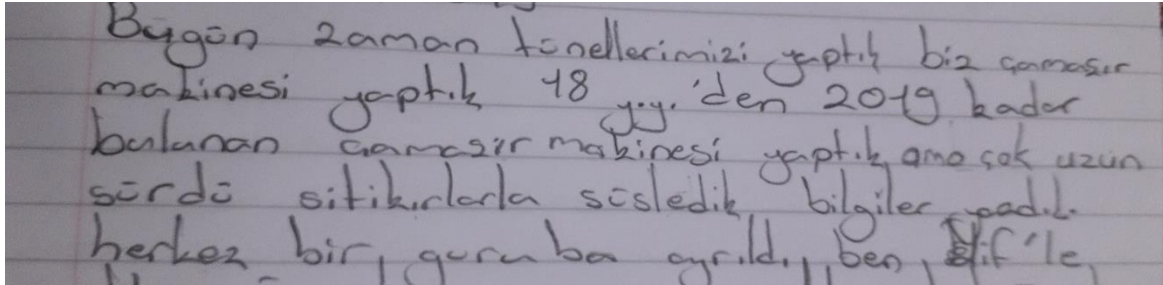 Bugün zaman tünellerimizi yaptık biz çamaşır
makinesi yaptık 18 yy.'den 2019 kadar
bulunan çamaşır makinesi yaptık ama çok uzun
sürdü sitikırlarla süsledik bilgiler yadık
herkez bir guruba ayrıldı, ben, Elif'le,